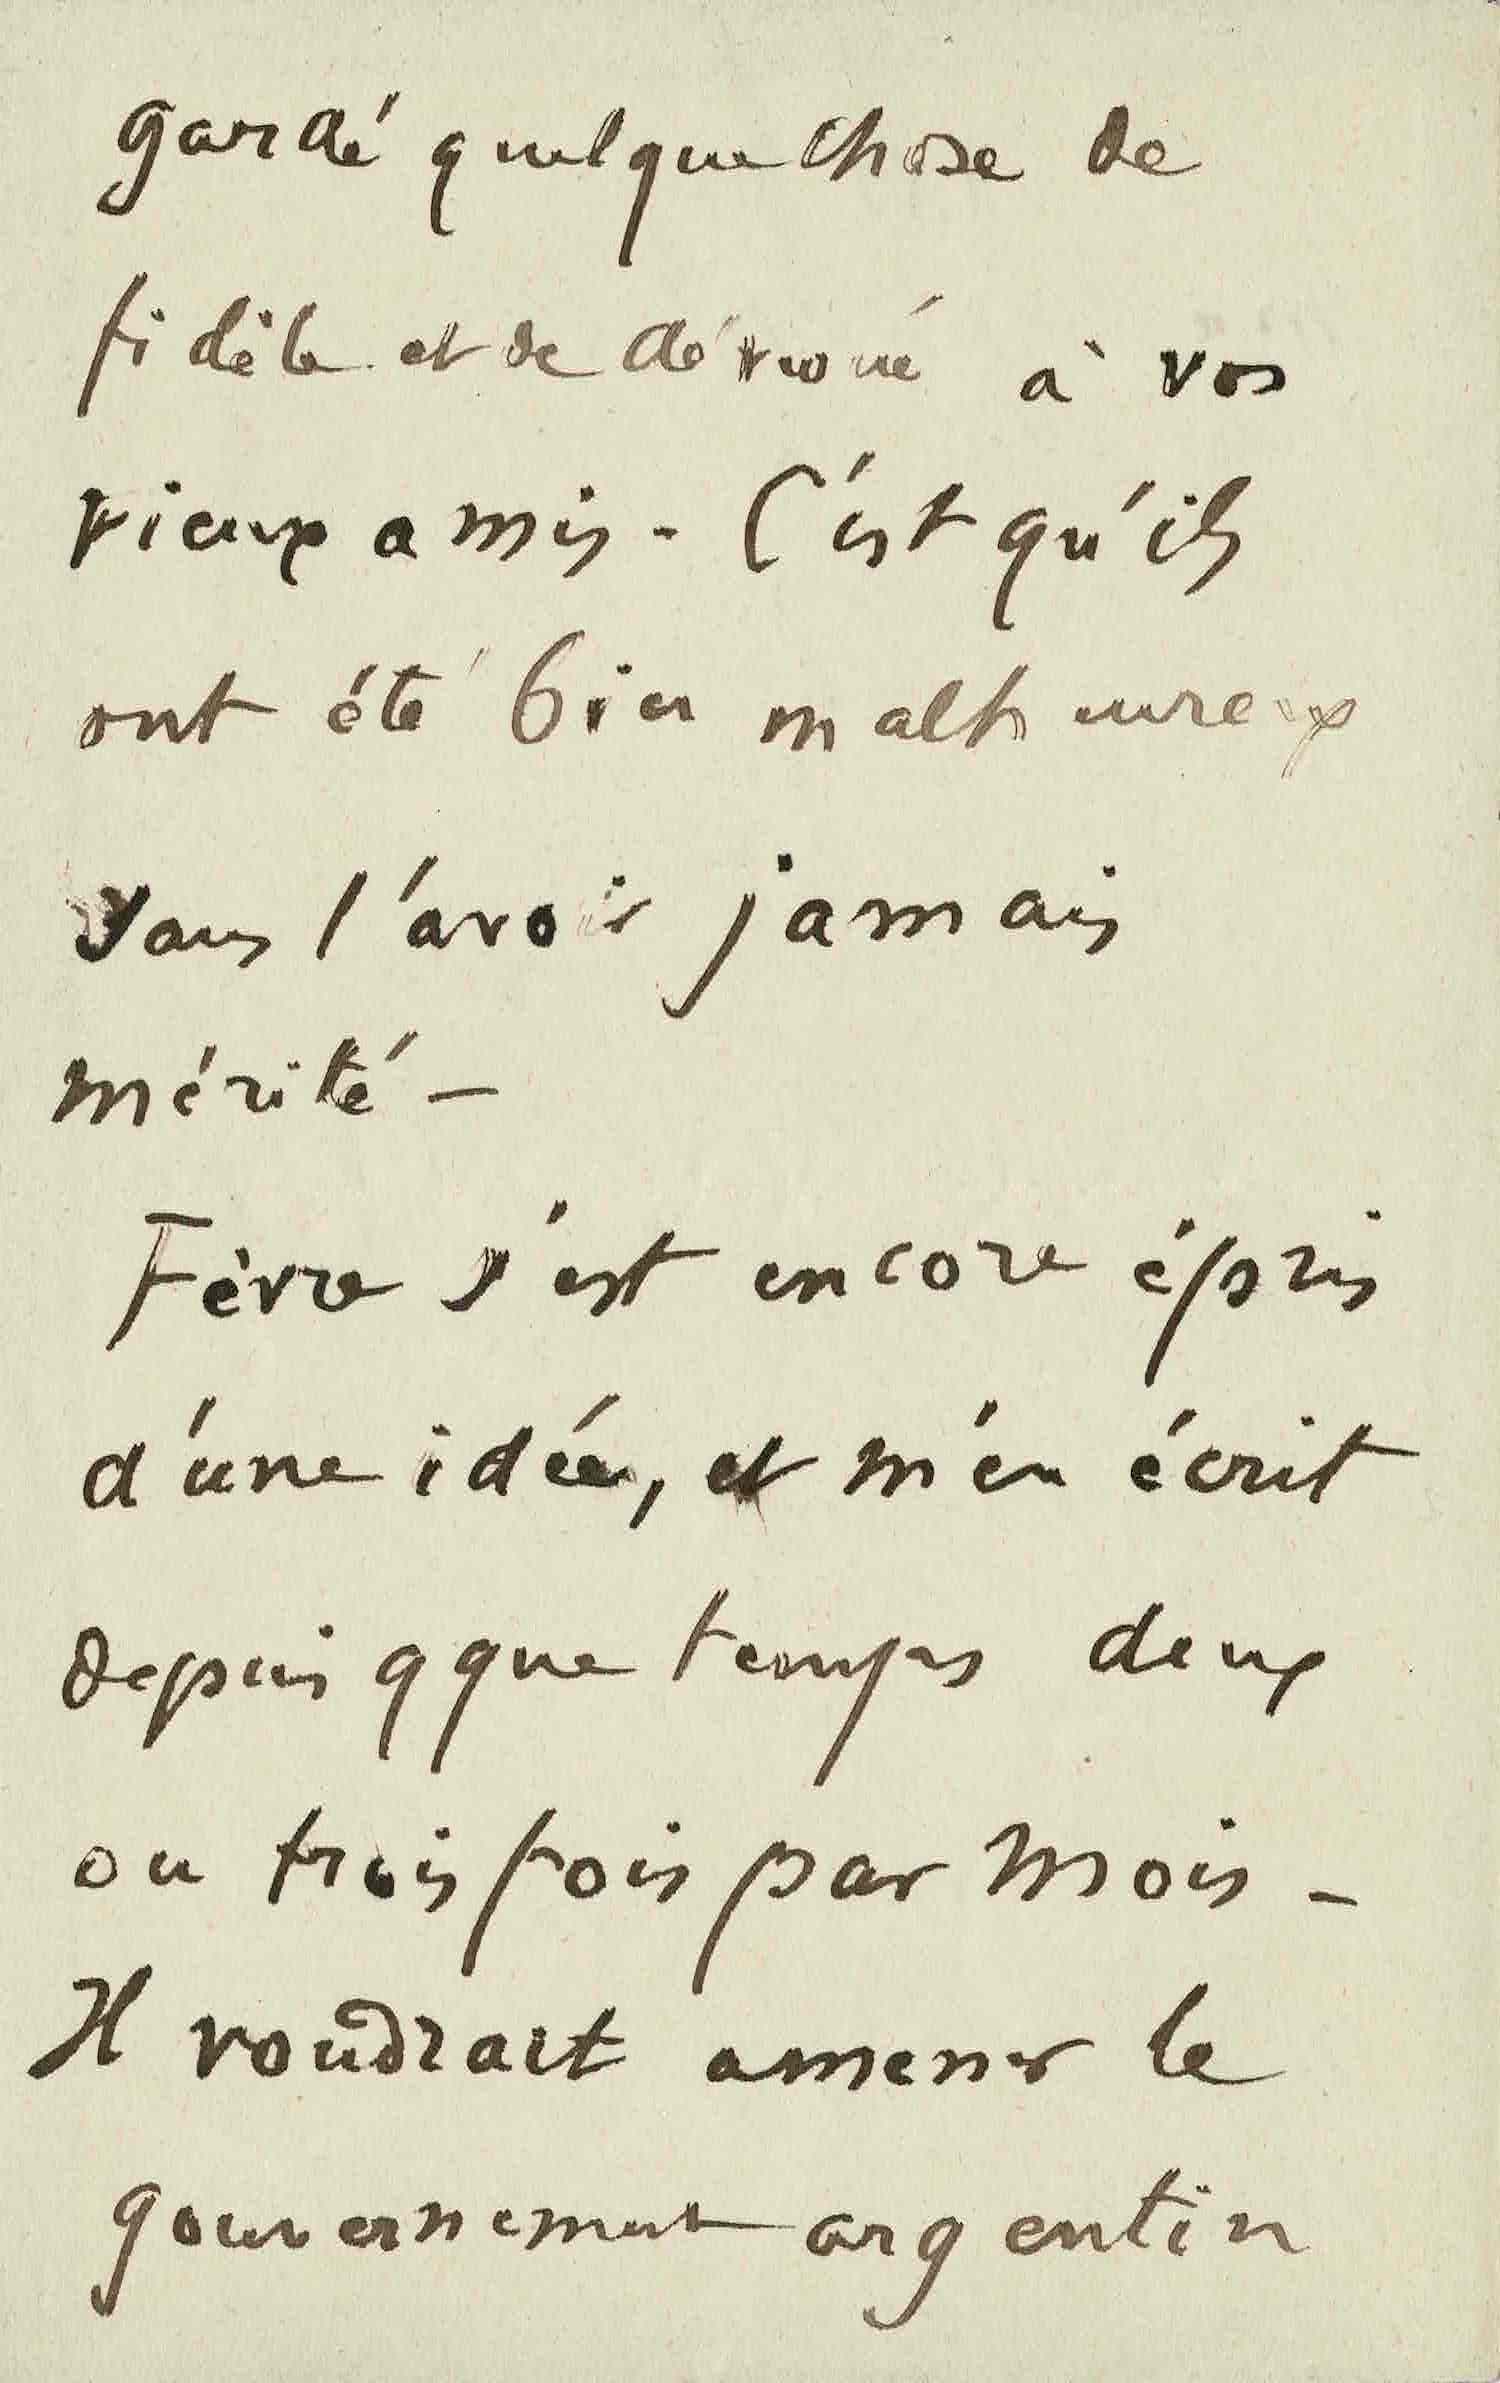 gardé quelque chose de
fidèle et de dévoué à vos
vieux amis - C'est qu'ils
ont été bien malheureux
sans l'avoir jamais
mérité -
Fèvre s'est encore épris
d'une idée, et m'en écrit
depuis qque temps deux
ou trois fois par mois -
Il voudrait amener le
gouvernement argentin